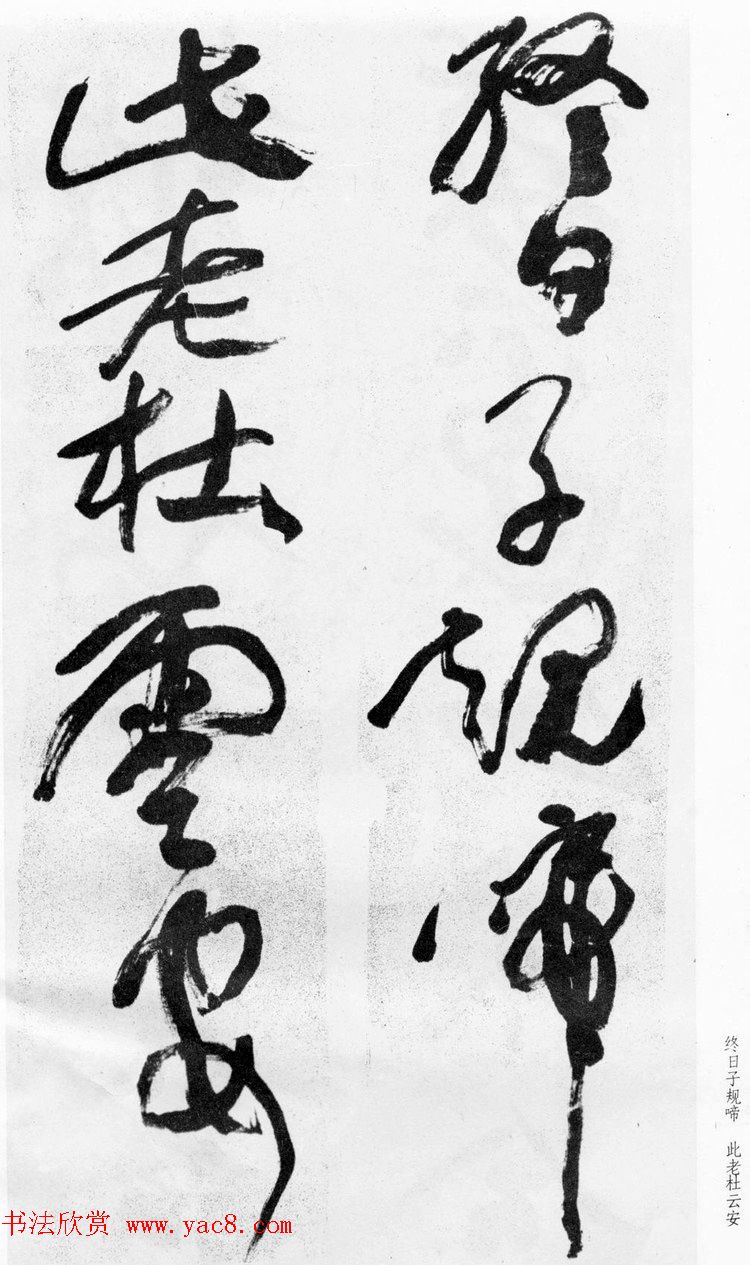 終日子規啼
此老杜雲安
终日子规啼 此老杜云安
书法欣赏 www.yac8.com